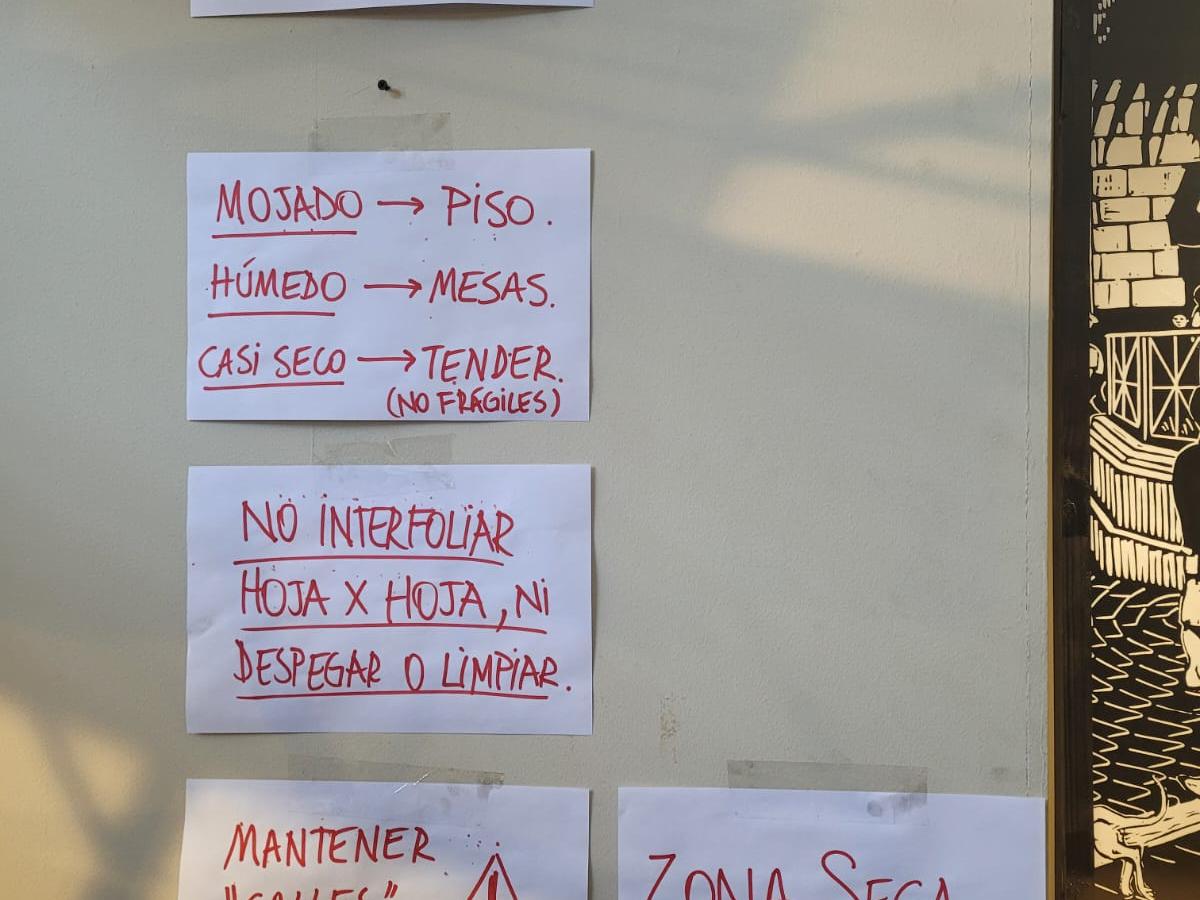 MOJADO → PISO.
HÚMEDO → MESAS.
CASI SECO → TENDER.
(NO FRÁGILES)
NO INTERFOLIAR
HOJA X HOJA, NI
DESPEGAR O LIMPIAR.
MANTENER
"CALLES"
ZONA SECA